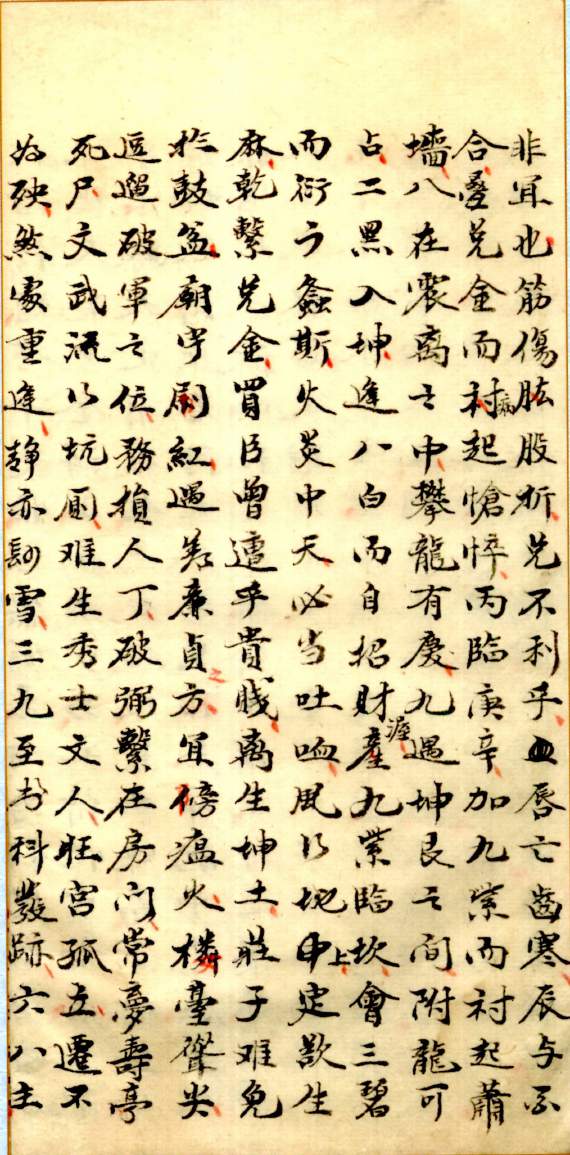 非宜也筋傷肱股折兌不利乎血唇亡齒寒辰与
合疊兌金而衬起愴悴丙臨庚辛加九紫而衬起蕭
墻八在震离之中攀龍有慶九遇坤艮之间附龍可
占二黑入坤逢八白而自招財產九紫臨坎會三碧
而衍螽斯火炎中天必当吐血風行地上定歎生
麻乾繫兌金買臣曾遭乎貴賎离生坤土莊子难免
於鼓盆廟宇刷紅遇廉貞方宜傍瘟火樓臺聳尖
逗遛破軍之位務損人丁破弼繫在房门常夢壽亭
死尸文武流以坑厠难生秀士文人旺宫孤立遷不
为殃煞處重逢静亦刼雪三九至於科發跡六八主